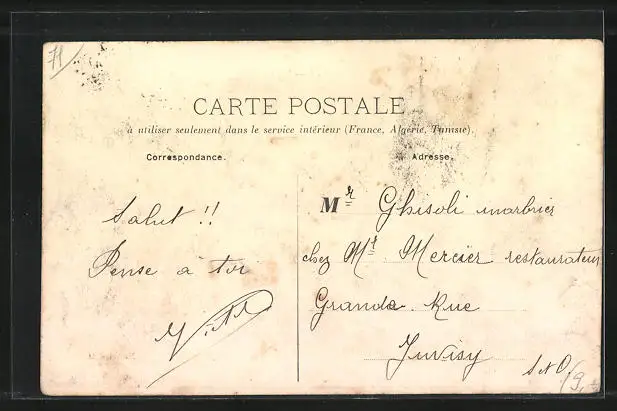 71
CARTE POSTALE
à utiliser seulement dans le service intérieur (France, Algérie, Tunisie).
Correspondance.
Adresse.
Salut !!
Pense à toi
Mr Ghisoli marbrier
chez Mr Mercier restaurateur
Grande Rue
Juvisy
S et O